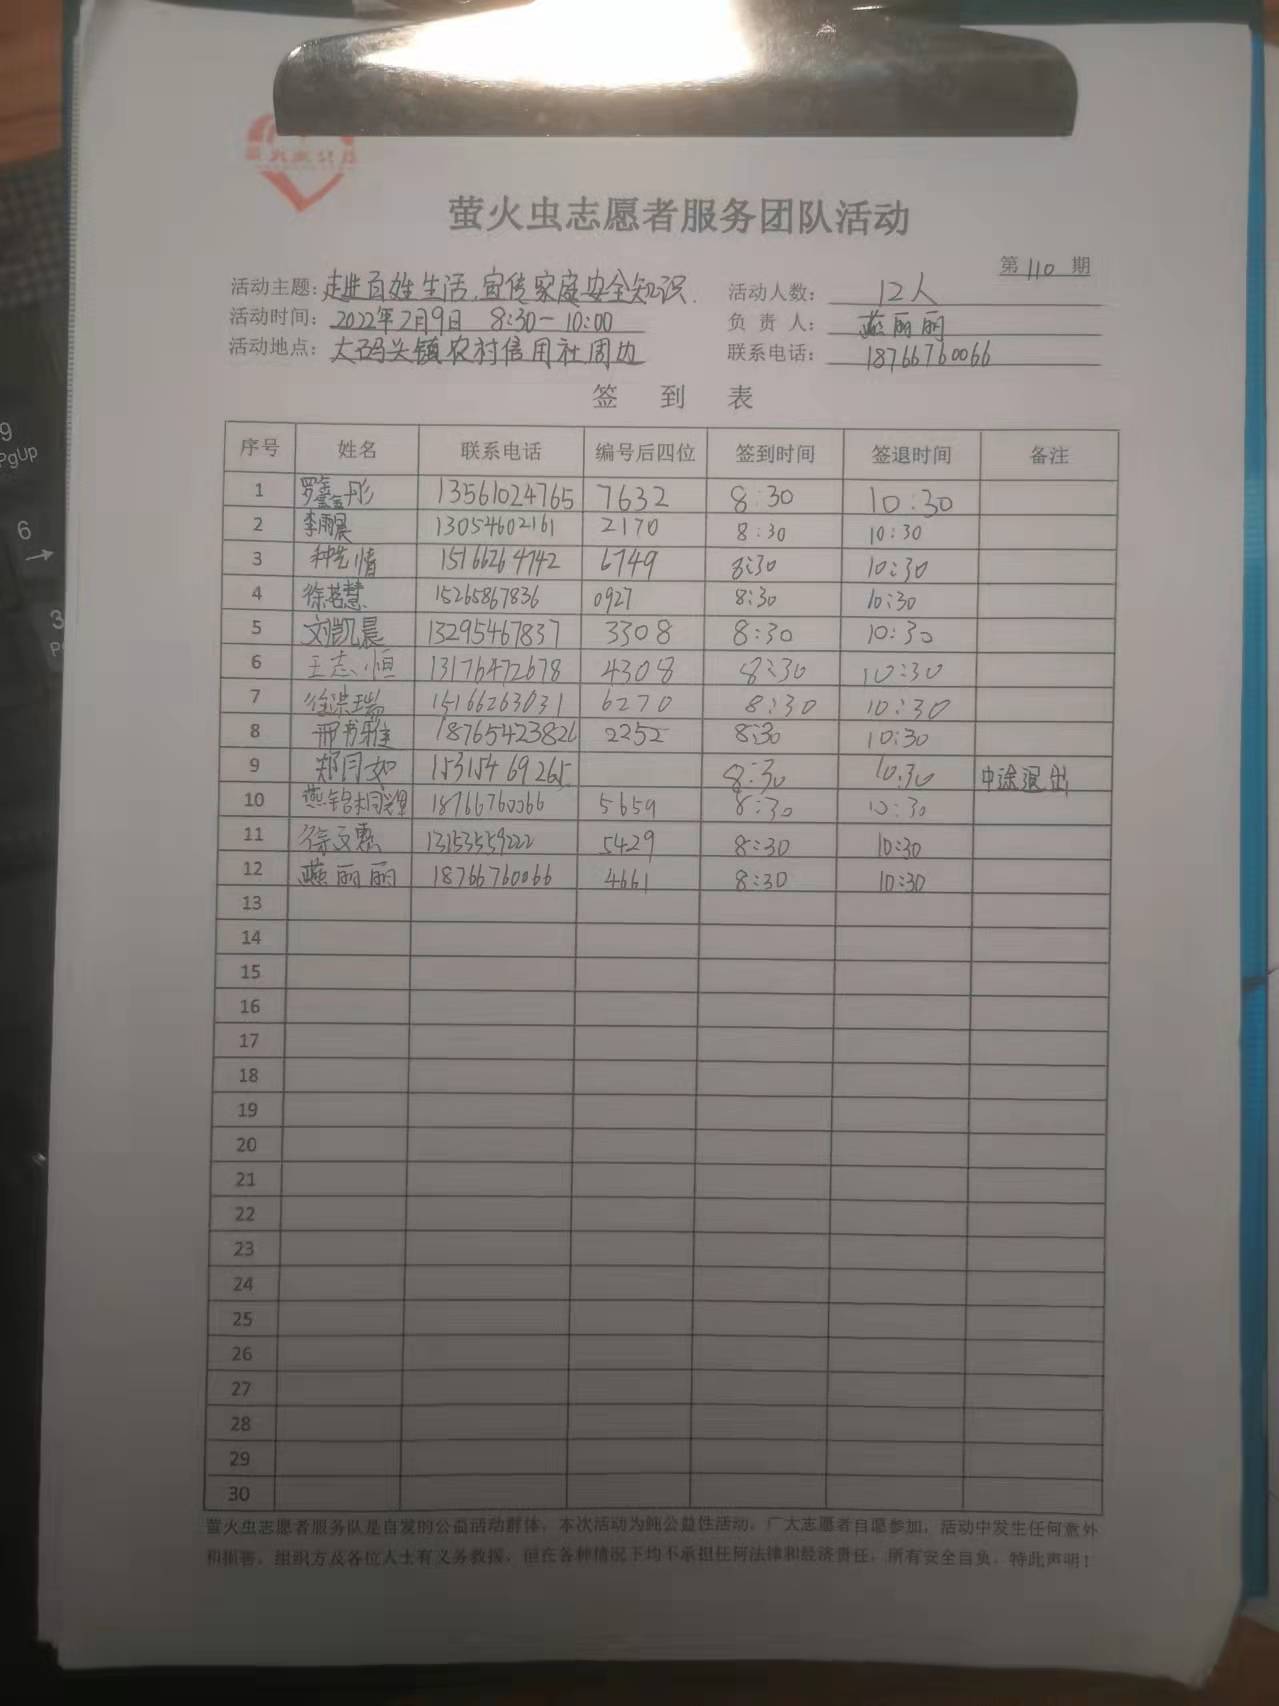 萤火虫志愿者服务团队活动
第 110 期
活动主题: 走进百姓生活,宣传家庭安全知识. 活动人数: 12人
活动时间: 2022年2月9日 8:30-10:00 负责人: 燕丽丽
活动地点: 大码头镇农村信用社周边 联系电话: 18766760066
签到表
序号 姓名 联系电话 编号后四位 签到时间 签退时间 备注
1 罗鑫彤 13561024765 7632 8:30 10:30
2 李雨晨 13054602161 2170 8:30 10:30
3 15166264742 6749 8:30 10:30
4 徐茗慧 15265867836 0927 8:30 10:30
5 刘凯晨 13295467837 3308 8:30 10:30
6 王志恒 13176472678 4308 8:30 10:30
7 徐洪瑞 15166263031 6270 8:30 10:30
8 邢书雅 18765423826 2252 8:30 10:30
9 郑月如 15315469265 8:30 10:30 中途退出
10 18766760066 5659 8:30 10:30
11 徐文惠 13153559222 5429 8:30 10:30
12 燕丽丽 18766760066 4661 8:30 10:30
13
14
15
16
17
18
19
20
21
22
23
24
25
26
27
28
29
30
萤火虫志愿者服务队是自发的公益活动群体，本次活动为纯公益性活动，广大志愿者自愿参加，活动中发生任何意外
和损害，组织方及各位人士有义务救援，但在各种情况下均不承担任何法律和经济责任，所有安全自负，特此声明！
9
PgUp
6
→
3